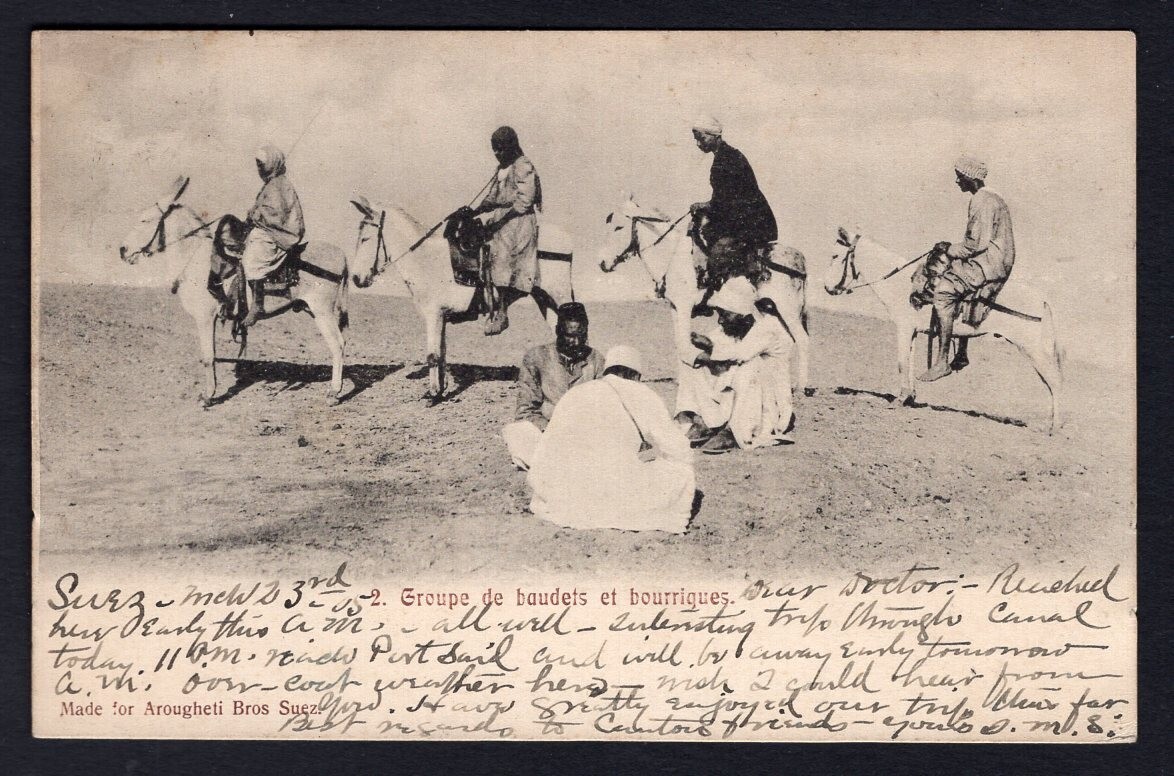 Suez - Mch 23rd - 05 2. Groupe de baudets et bourriques. Dear Doctor:- Reached
here Early this A.M. - all well - interesting trip through Canal
today. 11 P.M. reach Port Said and will be away Early tomorrow
A.M. Over-coat weather here - wish I could hear from
Made for Arougheti Bros Suez. you. Have greatly enjoyed our trip thus far
Best regards to Canton friends - yours S.M.S.